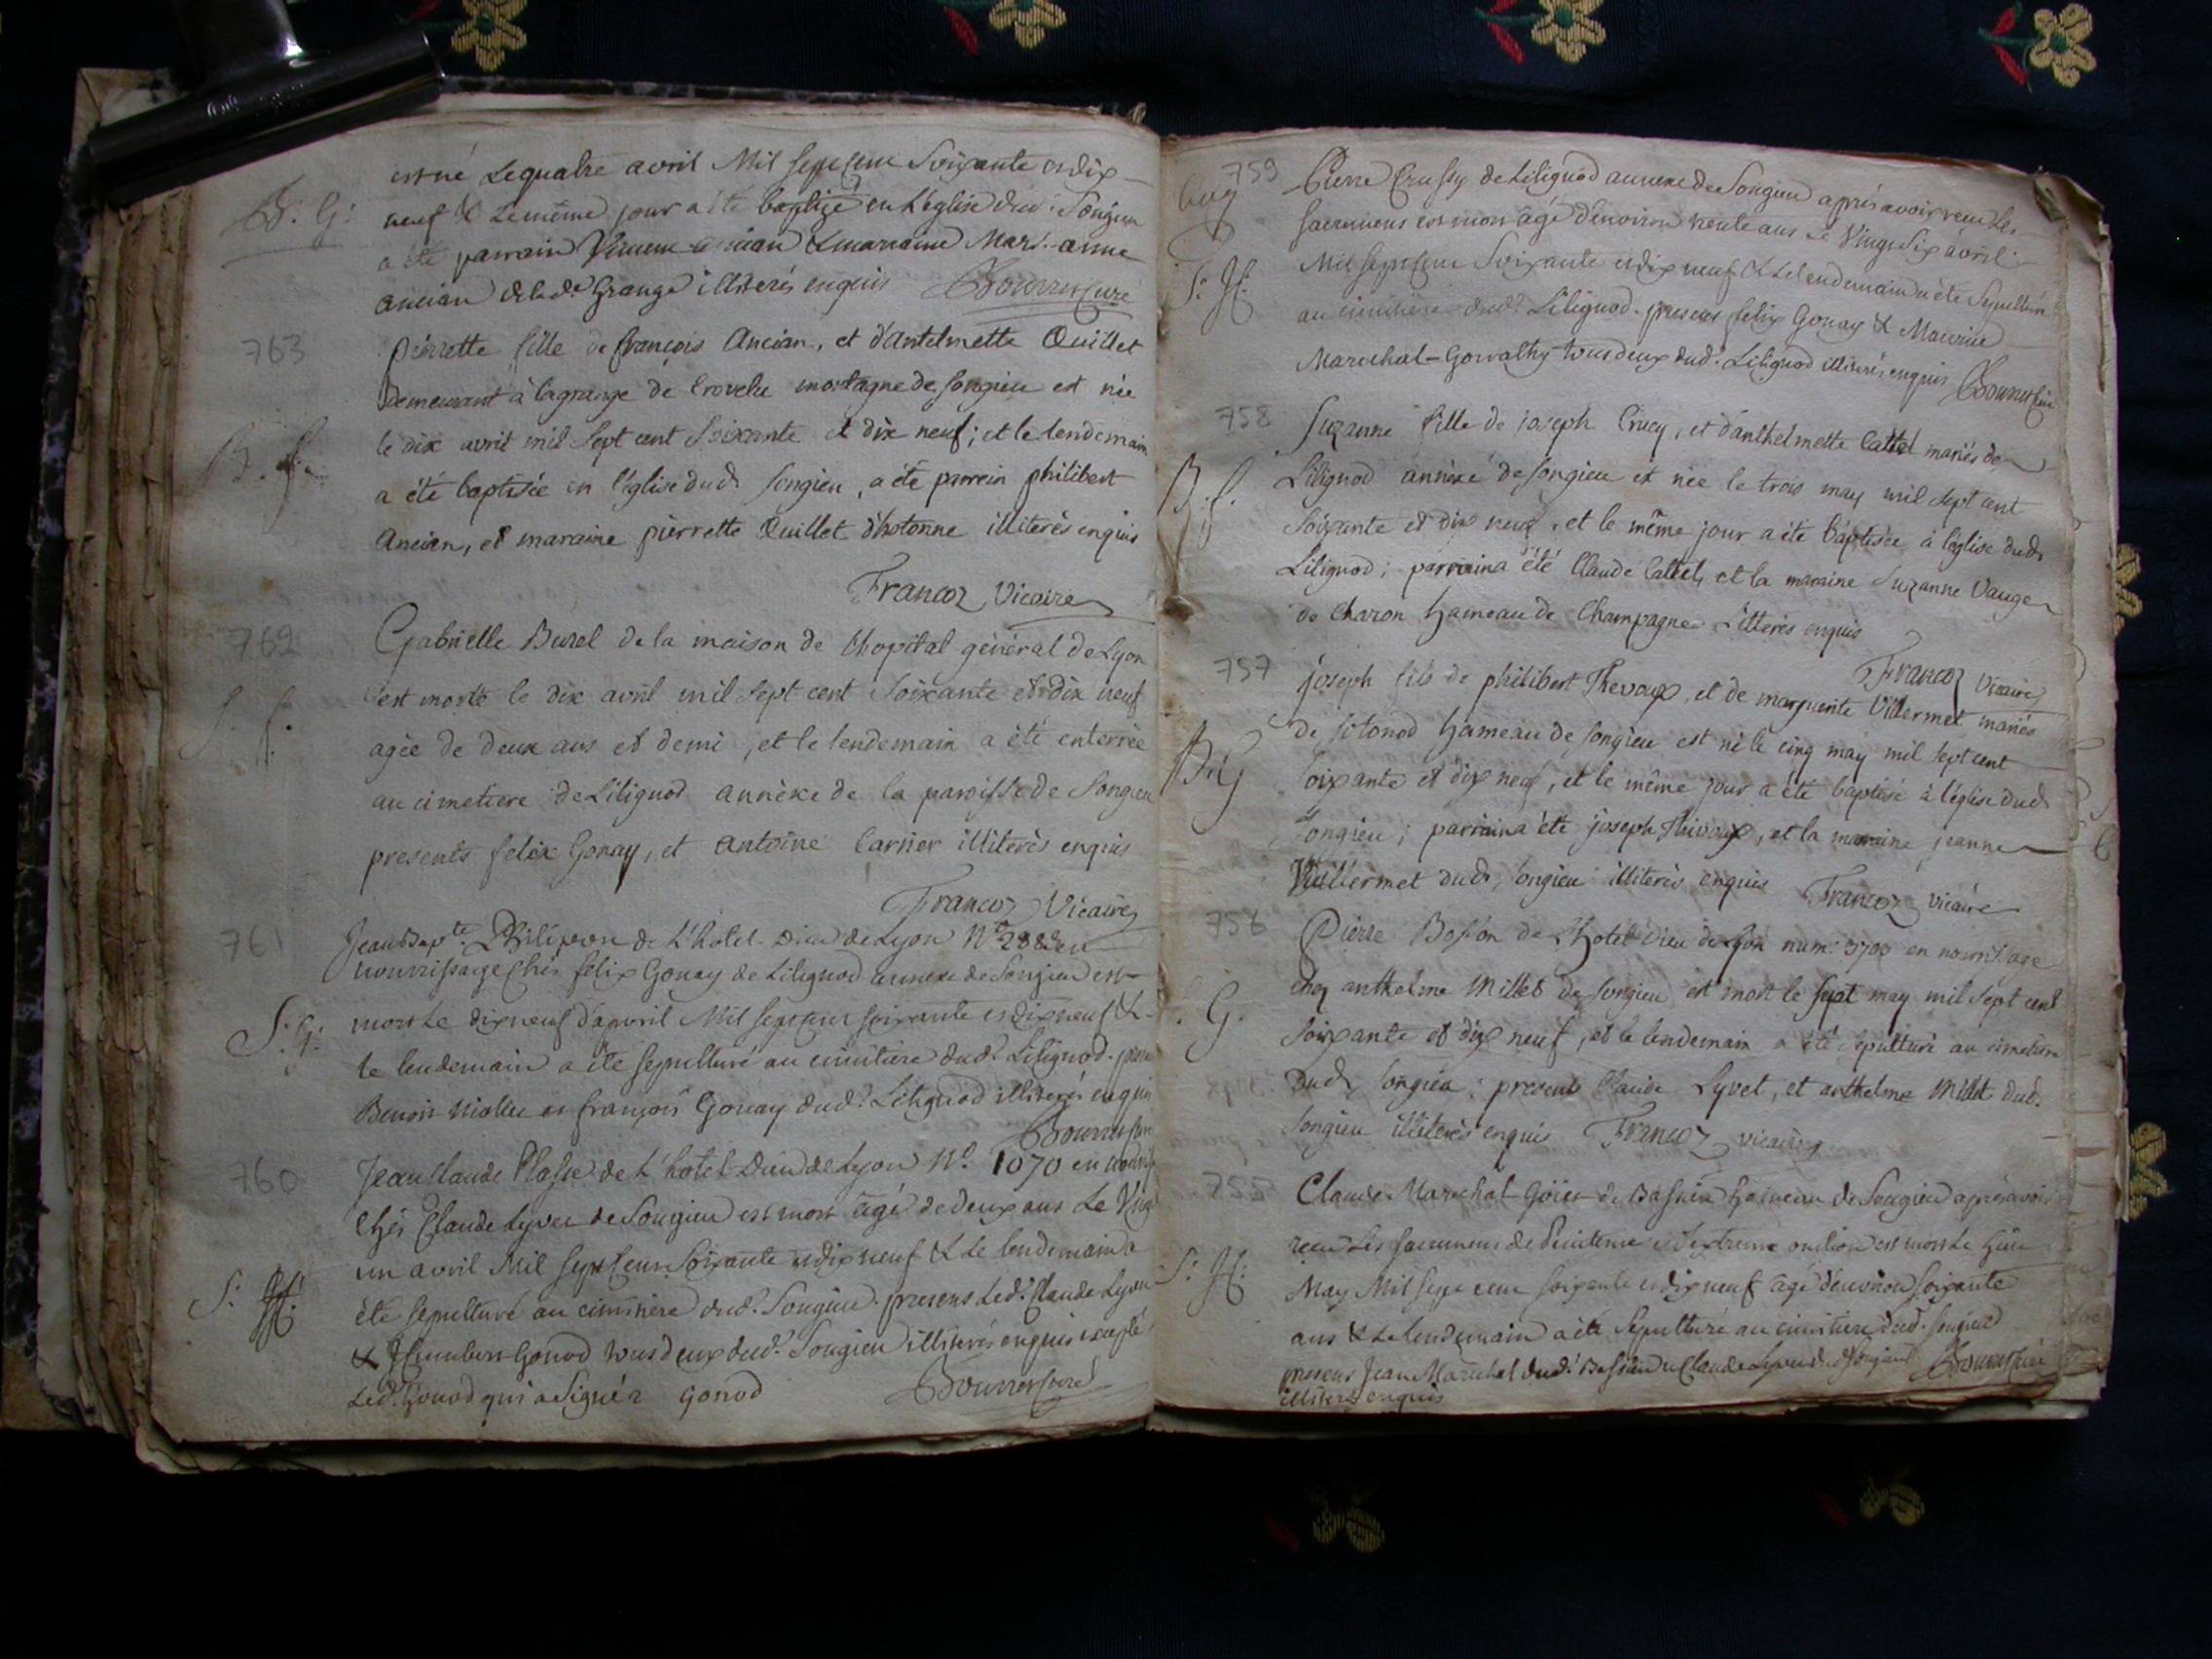 est né Le quatre avril Mil sept cent Soixante et dix
B. G. neuf & Le même jour a été baptizé en L'église dud. Songieu
a été parrain ancian & marraine Marie anne
ancian de lad.e Grange illiterés enquis Bourret curé
763 pierrette fille de françois Ancian, et d'antelmette Quillet
demeurant à la grange de Crovelu montagne de songieu est née
le dix avril mil sept cent soixante et dix neuf; et le lendemain
B. f. a été baptisée en l'église dud. songieu, a été parrein philibert
Ancian, et maraine pierrette Quillet d'hotonne illiterés enquis
Francoz Vicaire
762 Gabrielle Burel de la maison de l'hopital général de Lyon
S. f. est morte le dix avril mil sept cent soixante et dix neuf
agée de deux ans et demi, et le lendemain a été enterrée
au cimetiere de Lilignod annèxe de la paroisse de Songieu
presents felix Gonay, et antoine Carrier illiterés enquis
Francoz Vicaire
761 Jean Bapte. Philippon de L'hotel-Dieu de Lyon No. en
nourrissage Chés felix Gonay de Lilignod annexe de Songieu est
S. G. mort Le dixneuf d'avril Mil sept cent soixante et dix neuf &
le lendemain a été sepulturé au cimitiere dud. Lilignod.
Benoit et françois Gonay dud. Lilignod illiterés enquis
Bourret
760 Jean Claude Plasse de L'hotel Dieu de Lyon No. 1070 en
Chés Claude Lyvet de Songieu est mort âgé de deux ans Le Vingt
un avril Mil sept cent Soixante et dix neuf & Le lendemain a
S. H. été sepulturé au cimitiere dud. Songieu. presens Led. Claude Lyvet
& Humbert Gonod tous deux dud. Songieu illiterés enquis excepté
Led. Gonod qui a Signé Gonod Bourret curé
759 Pierre Crussy de Lilignod annexe de Songieu après avoir receu Les
sacremens est mort âgé d'environ trente ans Le Vingt Six avril
S. H. Mil sept cent Soixante et dix neuf & Le lendemain a été Sepulturé
au cimitiere dud. Lilignod. presens felix Gonay & Maurice
Marechal tous deux dud. Lilignod illiterés enquis Bourret
758 Suzanne fille de joseph Crucy, et d'anthelmette Cattel mariés de
B. f. Lilignod annèxe de songieu est née le trois may mil sept cent
soixante et dix neuf, et le même jour a été baptisée à léglise dud.
Lilignod; parrain a été Claude Cattel, et la maraine Suzanne Vauge
de Charon hameau de Champagne illiterés enquis
Francoz Vicaire
757 joseph fils de philibert Thevoux, et de marguerite Villermet mariés
de sotonod hameau de songieu est né le cinq may mil sept cent
B. G. soixante et dix neuf, et le même jour a été baptisé à l'église dud.
songieu; parrain a été joseph Thivoux, et la maraine jeanne
Vuillermet dud. songieu illiterés enquis Francoz vicaire
756 Pierre Bosson de l'hotel Dieu de Lyon num. en nourrissage
G. chez anthelme Millet de songieu est mort le sept may mil sept cent
soixante et dix neuf, et le lendemain a été sepulturé au cimetiere
dud. songieu; presents Claude Lyvet, et anthelme Millet dud.
songieu illiterés enquis Francoz vicaire
755 Claude Marechal Goïet de Bassieu hameau de Songieu après avoir
receu Les sacremens de Penitence et d'extreme onction est mort Le huit
S. H. May Mil sept cent soixante et dix neuf âgé d'environ soixante
ans & Le lendemain a été sepulturé au cimitiere dud. songieu
presens Jean Marechal dud. Bassieu & Claude Lyvet dud. Songieu Bourret curé
illiterés enquis